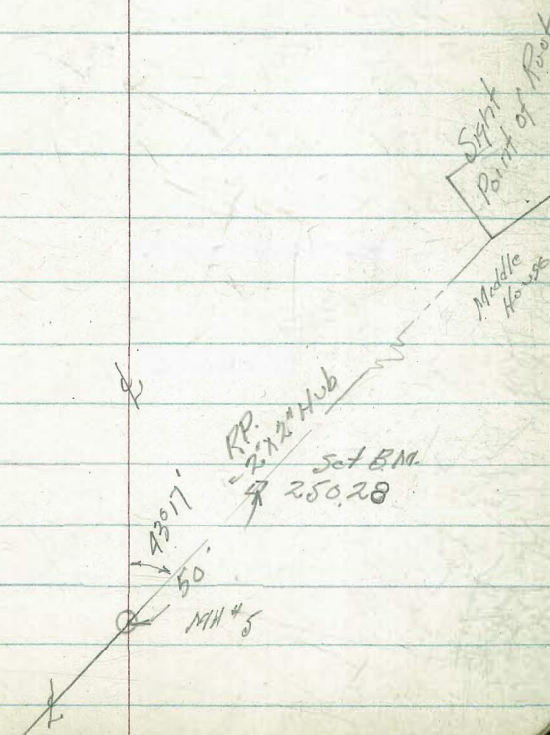 Sight
Point of
Middle
House
℄
RP.
2"x2" Hub
Set B.M.
250.28
43°17'
50'
MH #5
℄